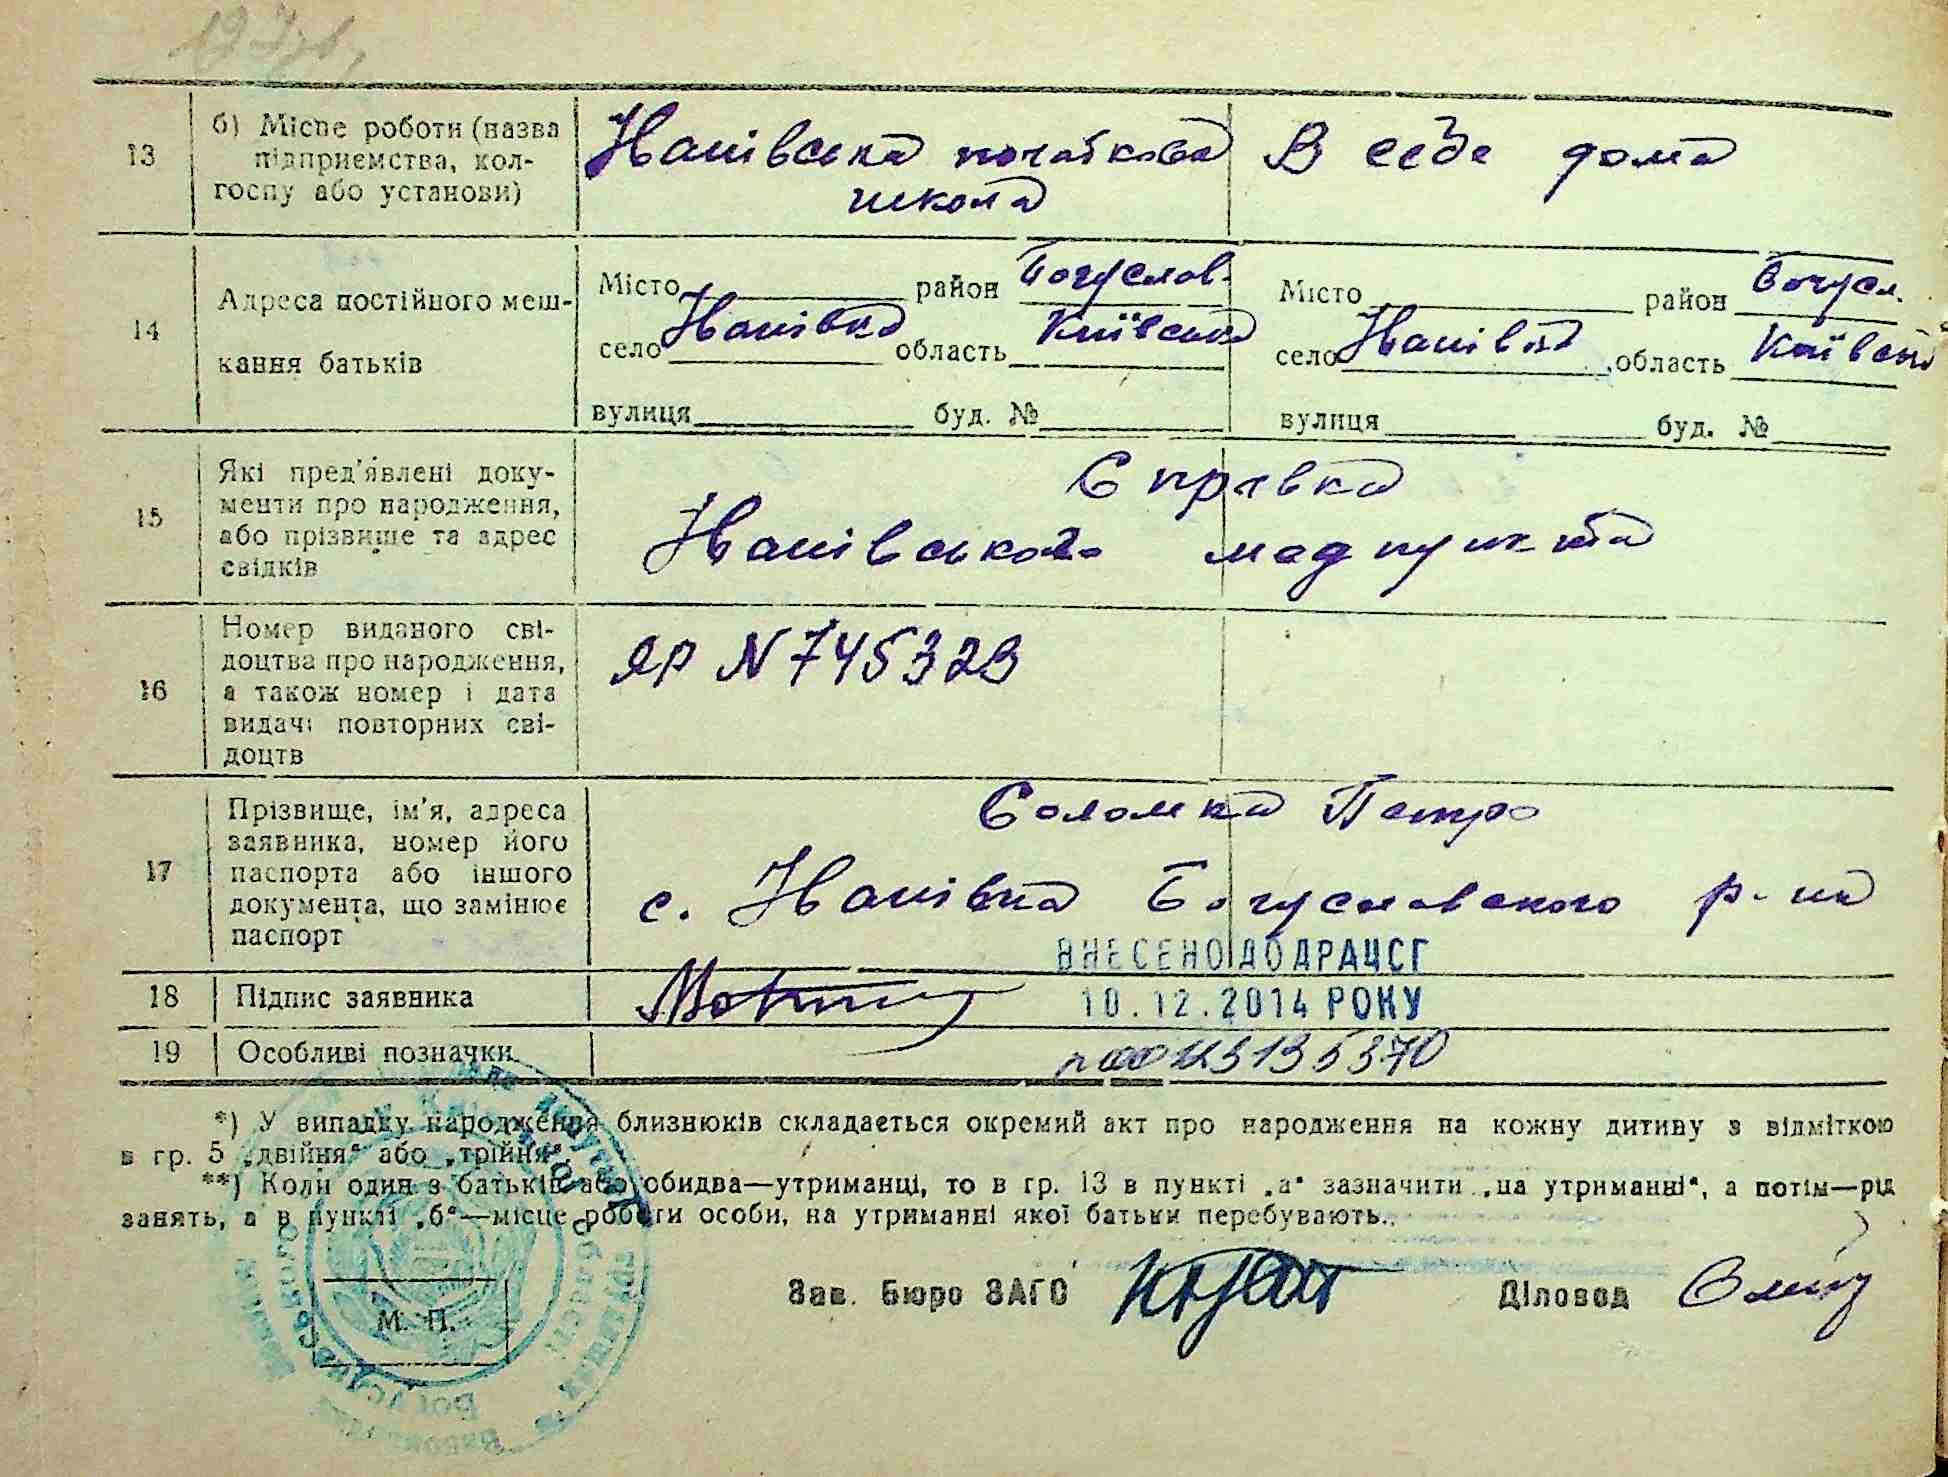 13
б) Місце роботи (назва
підприємства, кол-
госпу або установи)
Нахівська початкова
школа
В себе дома
14
Адреса постійного меш-
кання батьків
Місто район Богуслов.
село область Київська
вулиця буд. №
Місто район Богусл.
село область Київська
вулиця буд. №
15
Які пред'явлені доку-
менти про народження,
або прізвище та адрес
свідків
Справка
медпункта
16
Номер виданого сві-
доцтва про народження,
а також номер і дата
видачі повторних сві-
доцтв
ЯР N 745323
17
Прізвище, ім'я, адреса
заявника, номер його
паспорта або іншого
документа, що замінює
паспорт
Соломка Петро
с. Богуславского р-на
ВНЕСЕНО ДО ДРАЦСГ
18
Підпис заявника
10.12.2014 РОКУ
19
Особливі позначки
*) У випадку народження близнюків складається окремий акт про народження на кожну дитину з відміткою
в гр. 5 „двійня“ або „трійня“.
**) Коли один з батьків або обидва—утриманці, то в гр. 13 в пункті „а“ зазначити „на утриманні“, а потім—рід
занять, а в пункті „б“—місце роботи особи, на утриманні якої батьки перебувають.
Зав. Бюро ЗАГС
Діловод
М. П.